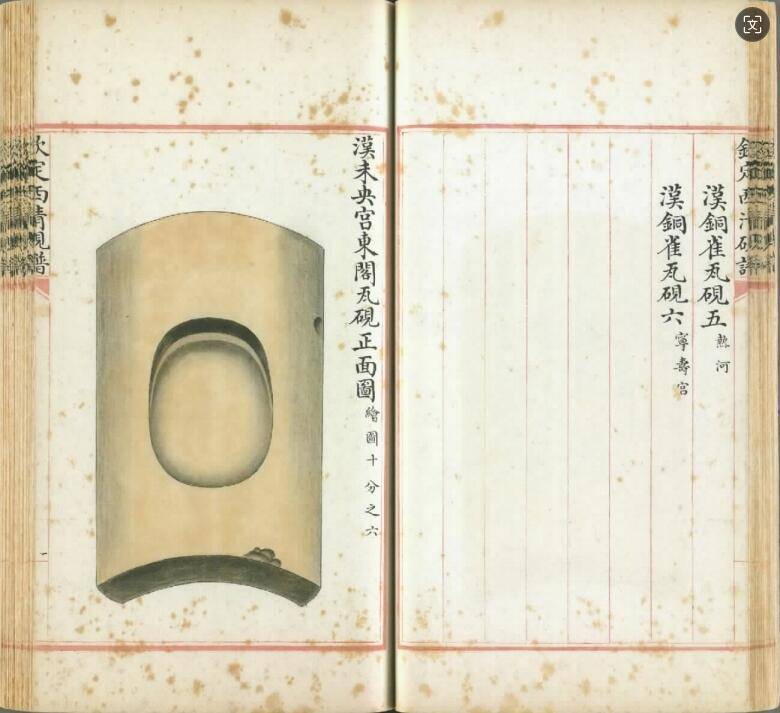 欽定西清硯譜
漢銅雀瓦硯五 熱河
漢銅雀瓦硯六 寧壽宮
漢未央宮東閣瓦硯正面圖 繪圖十分之六
欽定西清硯譜
一